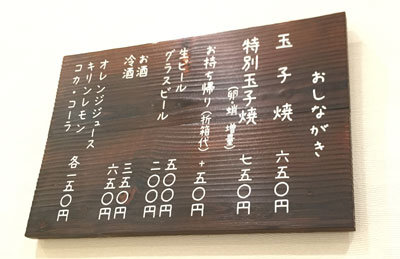 おしながき
玉子焼 六五〇円
特別玉子焼 七五〇円
(卵・蛸 増量)
お持ち帰り(折箱代) +五〇円
生ビール 五〇〇円
グラスビール 二〇〇円
お酒 三五〇円
冷酒 六五〇円
オレンジジュース
キリンレモン
コカ・コーラ 各一五〇円